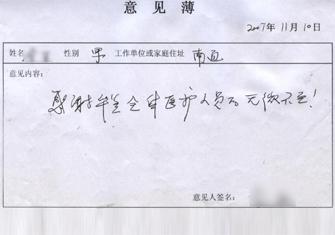 意见薄
2007年11月10日
姓名 性别 男 工作单位或家庭住址 南通
意见内容:
感谢 全体医护人员 无微不至!
意见人签名: